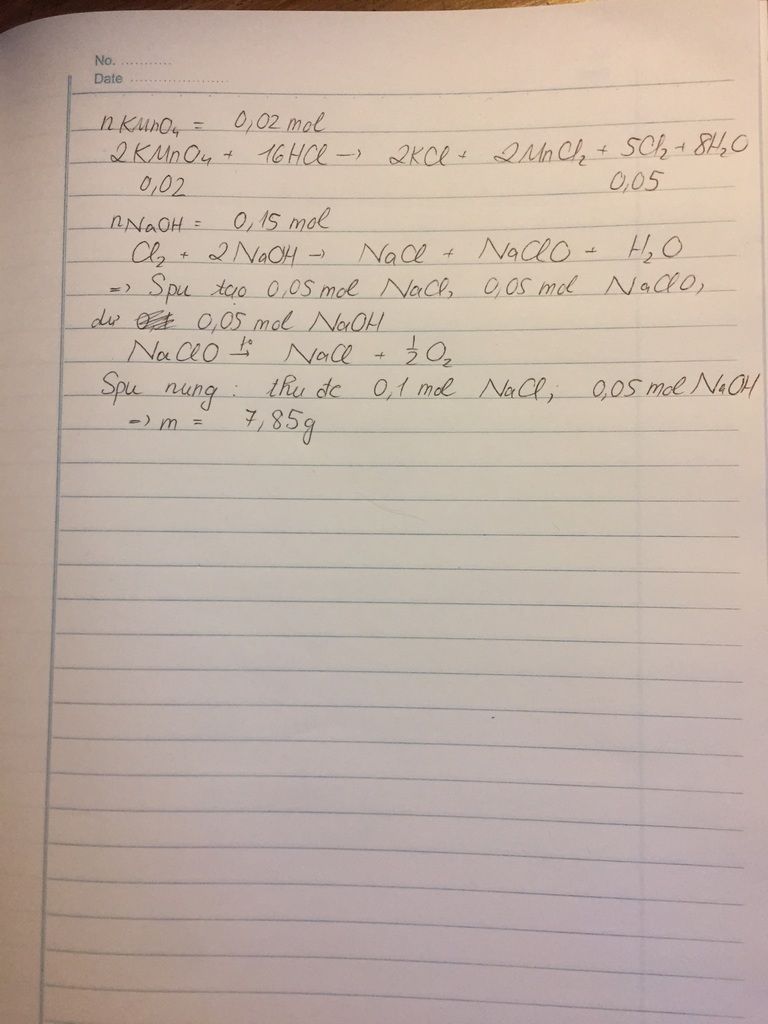 No. ...........
Date ......................
nKMnO₄ = 0,02 mol
2KMnO₄ + 16HCl → 2KCl + 2MnCl₂ + 5Cl₂ + 8H₂O
0,02 0,05
nNaOH = 0,15 mol
Cl₂ + 2NaOH → NaCl + NaClO + H₂O
=> Spu tạo 0,05 mol NaCl, 0,05 mol NaClO,
dư 0,05 mol NaOH
NaClO t°→ NaCl + 1/2 O₂
Spu nung : thu đc 0,1 mol NaCl; 0,05 mol NaOH
=> m = 7,85g